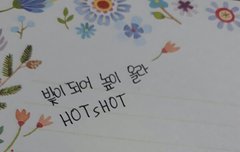 빛이 되어 높이 올라
HOTSHOT